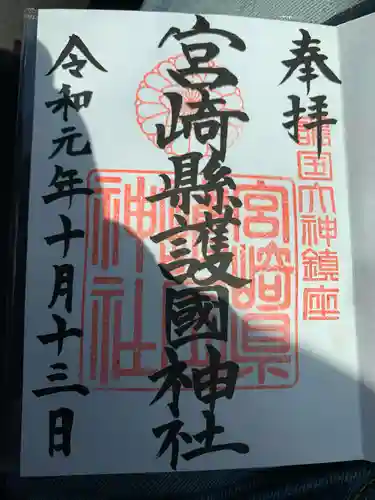 奉拝
護国大神鎮座
宮崎縣護國神社
宮崎県護国神社
令和元年十月十三日